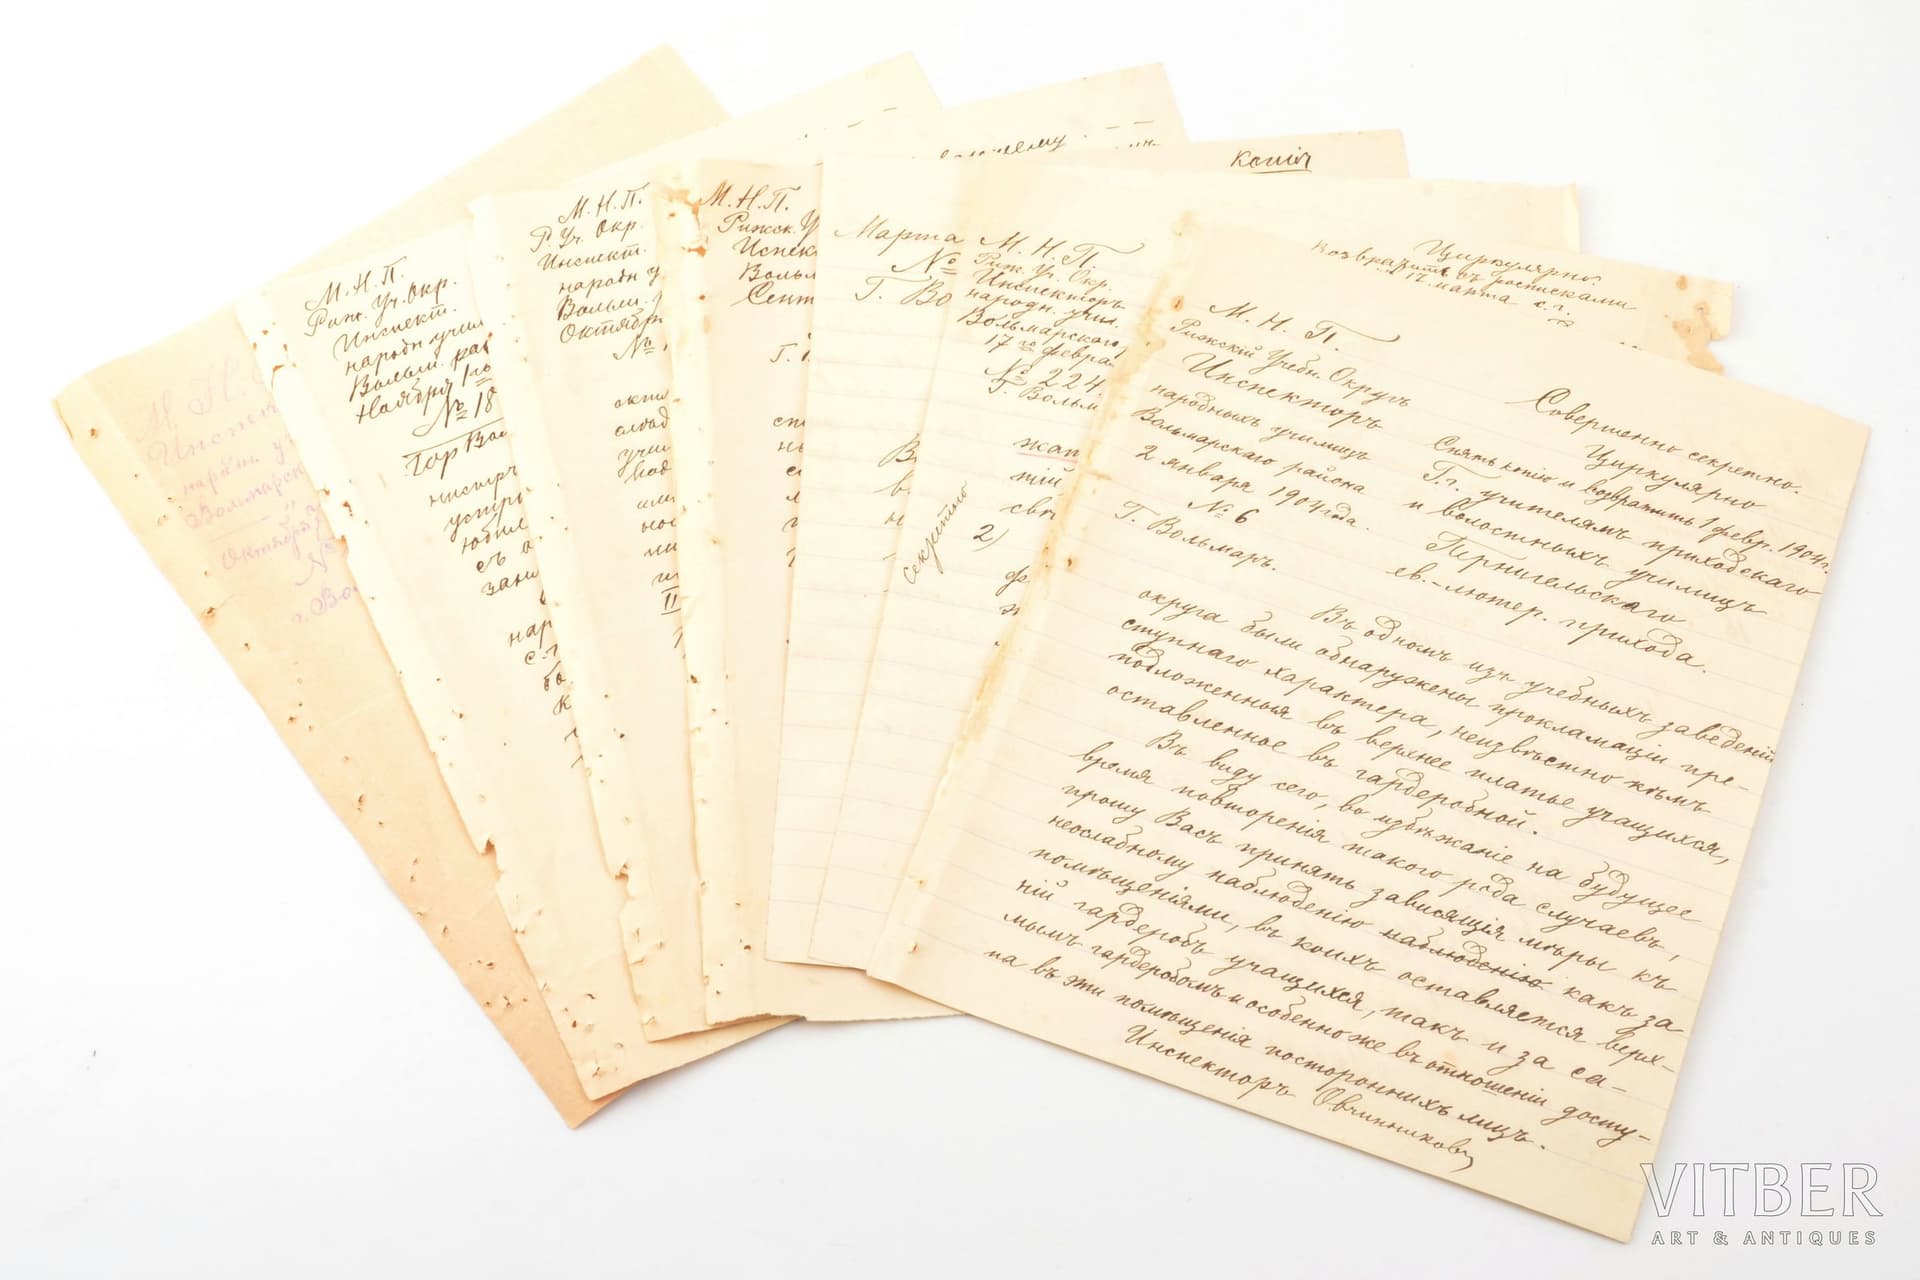 М. Н.
Инспект
народн. у
Вольмарск
Октября
№
г. Во
М. Н. П.
Риж. Уч. Окр.
Инспект.
народн учил
Вольм. рай
Ноября 1-го
№ 18
Гор Вол
инспр
устро
юбил
съ
зани
нар
с.
бо
К
М. Н. П.
Р. Уч. Окр.
Инспект.
народн у
Вольм.
Октября
№
окт
учи
II
М. Н. П.
Рижск. У
Инспек
Вольм
Сент
копія
Марта
№
Г. Во
В
в
н
М. Н. П.
Риж. Уч. Окр.
Инспекторъ
народн. учил.
Вольмарского
17 го февра
№ 224
Г. Вольм
секретно
жан
тій
свѣ
2)
ф
Циркулярно.
Возвратить съ росписками
17. марта с. г.
М. Н. П.
Рижскій Учебн. Округъ
Инспекторъ
народныхъ училищъ
Вольмарскаго района
2 января 1904 года.
№ 6
Г. Вольмаръ.
Совершенно секретно.
Циркулярно
Снять копію и возвратить 1 февр. 1904 г.
Г. г. учителямъ приходскаго
и волостныхъ училищъ
Пернигельскаго
ев.-лютер. прихода.
Въ одномъ изъ учебныхъ заведеній
округа были обнаружены прокламаціи пре-
ступнаго характера, неизвѣстно кѣмъ
подложенныя въ верхнее платье учащихся,
оставленное въ гардеробной.
Въ виду сего, во избѣжаніе на будущее
время повторенія такого рода случаевъ,
прошу Васъ принять зависящія мѣры къ
неослабному наблюденію наблюденію какъ за
помѣщеніями, въ коихъ оставляется верх-
ній гардеробъ учащихся, такъ и за са-
мымъ гардеробомъ и особенно же въ отношеніи досту-
па въ эти помѣщенія постороннихъ лицъ.
Инспекторъ Овчинниковъ
VITBER
ART & ANTIQUES